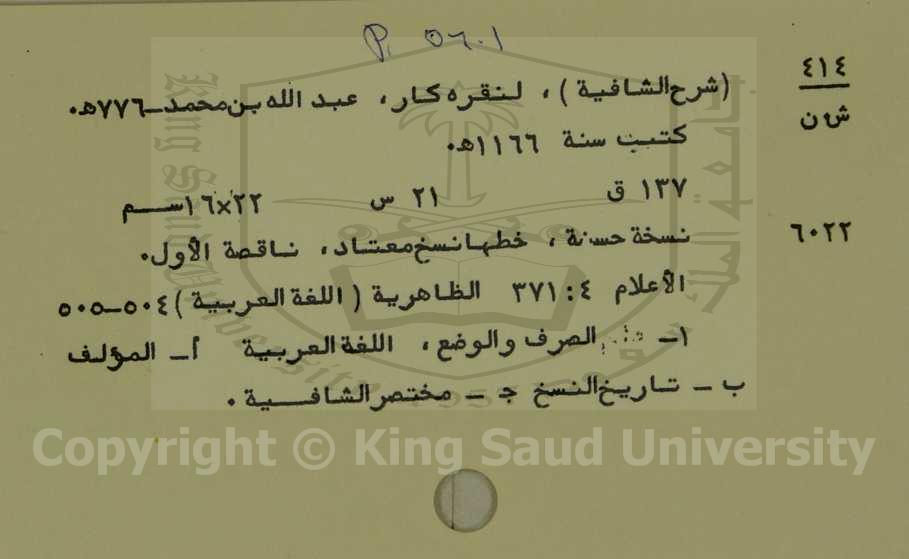 P. ٥٦٠١
٤١٤ (شرح الشافية)، لنقره كار، عبد الله بن محمد-٧٧٦ه.
ش ن
كتبت سنة ١١٦٦ه.
١٣٧ ق ٢١ س ٢٢×١٦سم
٦٠٢٢ نسخة حسنة، خطها نسخ معتاد، ناقصة الأول.
الأعلام ٤: ٣٧١ الظاهرية (اللغة العربية) ٥٠٤-٥٠٥
١- الصرف والوضع، اللغة العربية أ- المؤلف
ب- تاريخ النسخ ج- مختصر الشافية.
Copyright © King Saud University